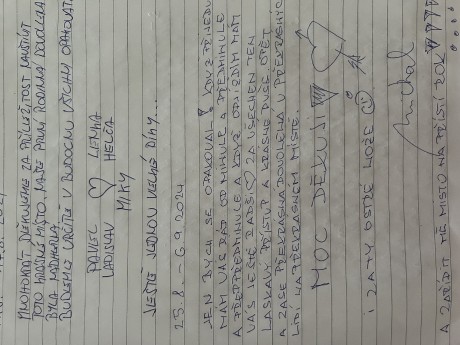 MNOHOKRÁT DĚKUJEME ZA PŘÍLEŽITOST NAVŠTÍVIT
TOTO KRÁSNÉ MÍSTO. NAŠE PRVNÍ RODINNÁ DOVOLENÁ
BYLA NÁDHERNÁ.
BUDEME URČITĚ V BUDOUCNU VŠICHNI OPAKOVAT.
PAVEL ♡ LENKA
LADISLAV HELČA
MIKY
JEŠTĚ JEDNOU VELKÉ DÍKY...
25.8. – 6.9.2024
JEN BYCH SE OPAKOVAL! KDYŽ PŘIJEDU
MÁM VÁS RÁD OD MINULE A PŘEDMINULE
A PŘEDPŘEDMINULE A KDYŽ ODJÍŽDÍM MÁM
VÁS JEŠTĚ RADŠI ♡ ZA VŠECHEN TEN
LASKAVÝ PŘÍSTUP A KRÁSNÉ DUŠE OPĚT
A ZASE PŘEKRÁSNÁ DOVOLENÁ U PŘEKRÁSNÝCH
LIDÍ NA PŘEKRÁSNÉM MÍSTĚ.
MOC DĚKUJI
I ZA TY OSTRÉ NOŽE ☺
Michal
A ZAŘÍDIT MĚ MÍSTO NA PŘÍŠTÍ ROK !!!!